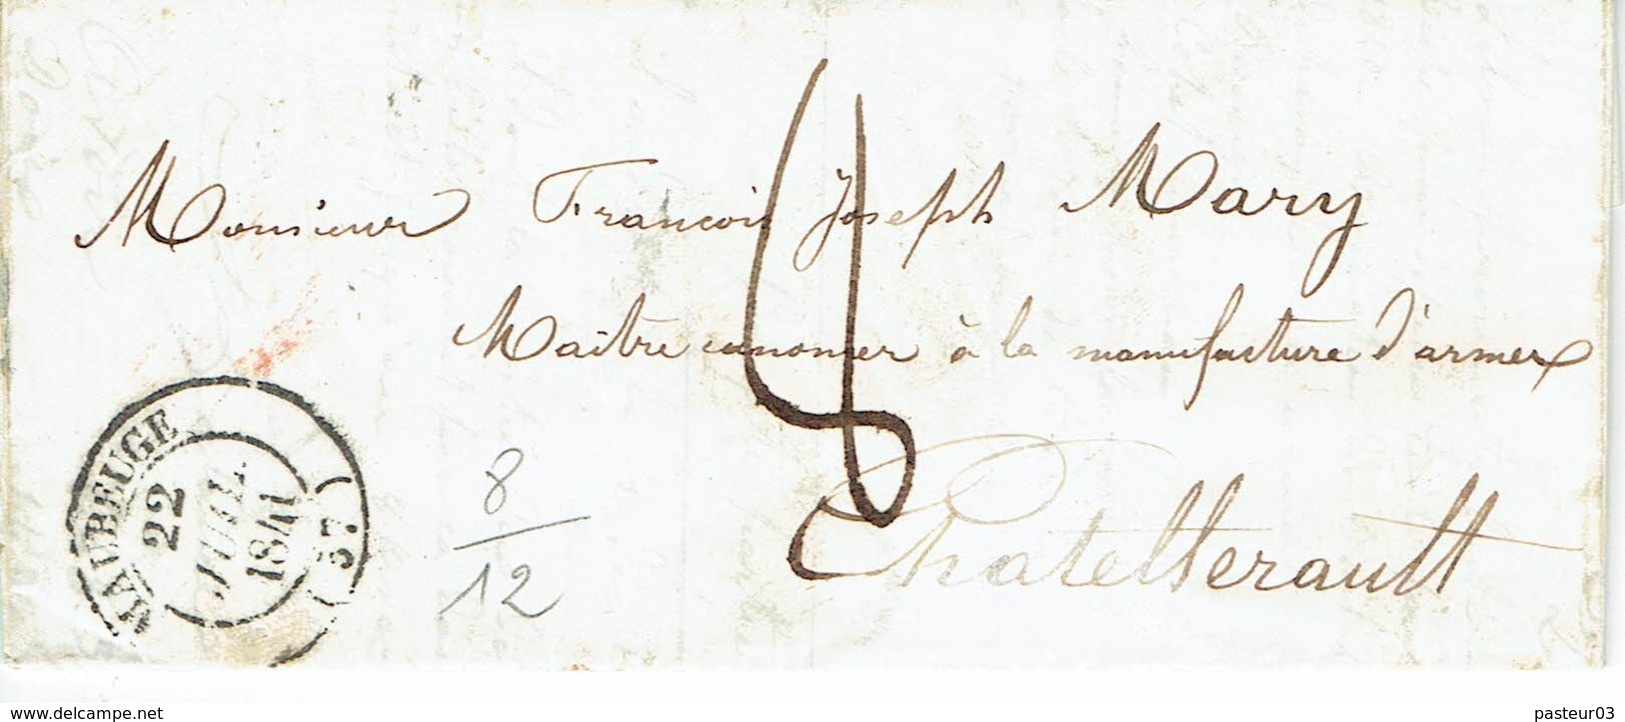 Monsieur François Joseph Mary
Maître canonier à la manufacture d'armes
Chatellerault
4
MAUBEUGE
22
JUIL.
1841
(57)
8
12
www.delcampe.net
pasteur03